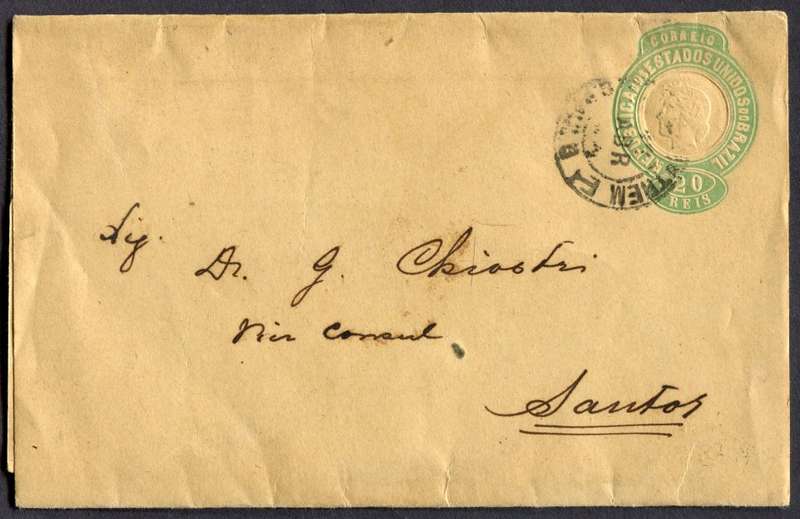 CORREIO
REPUBLICA DOS ESTADOS UNIDOS DO BRAZIL
20
REIS
ABR
Sig.
Dr. G. Chiostri
Vice Consul
Santos